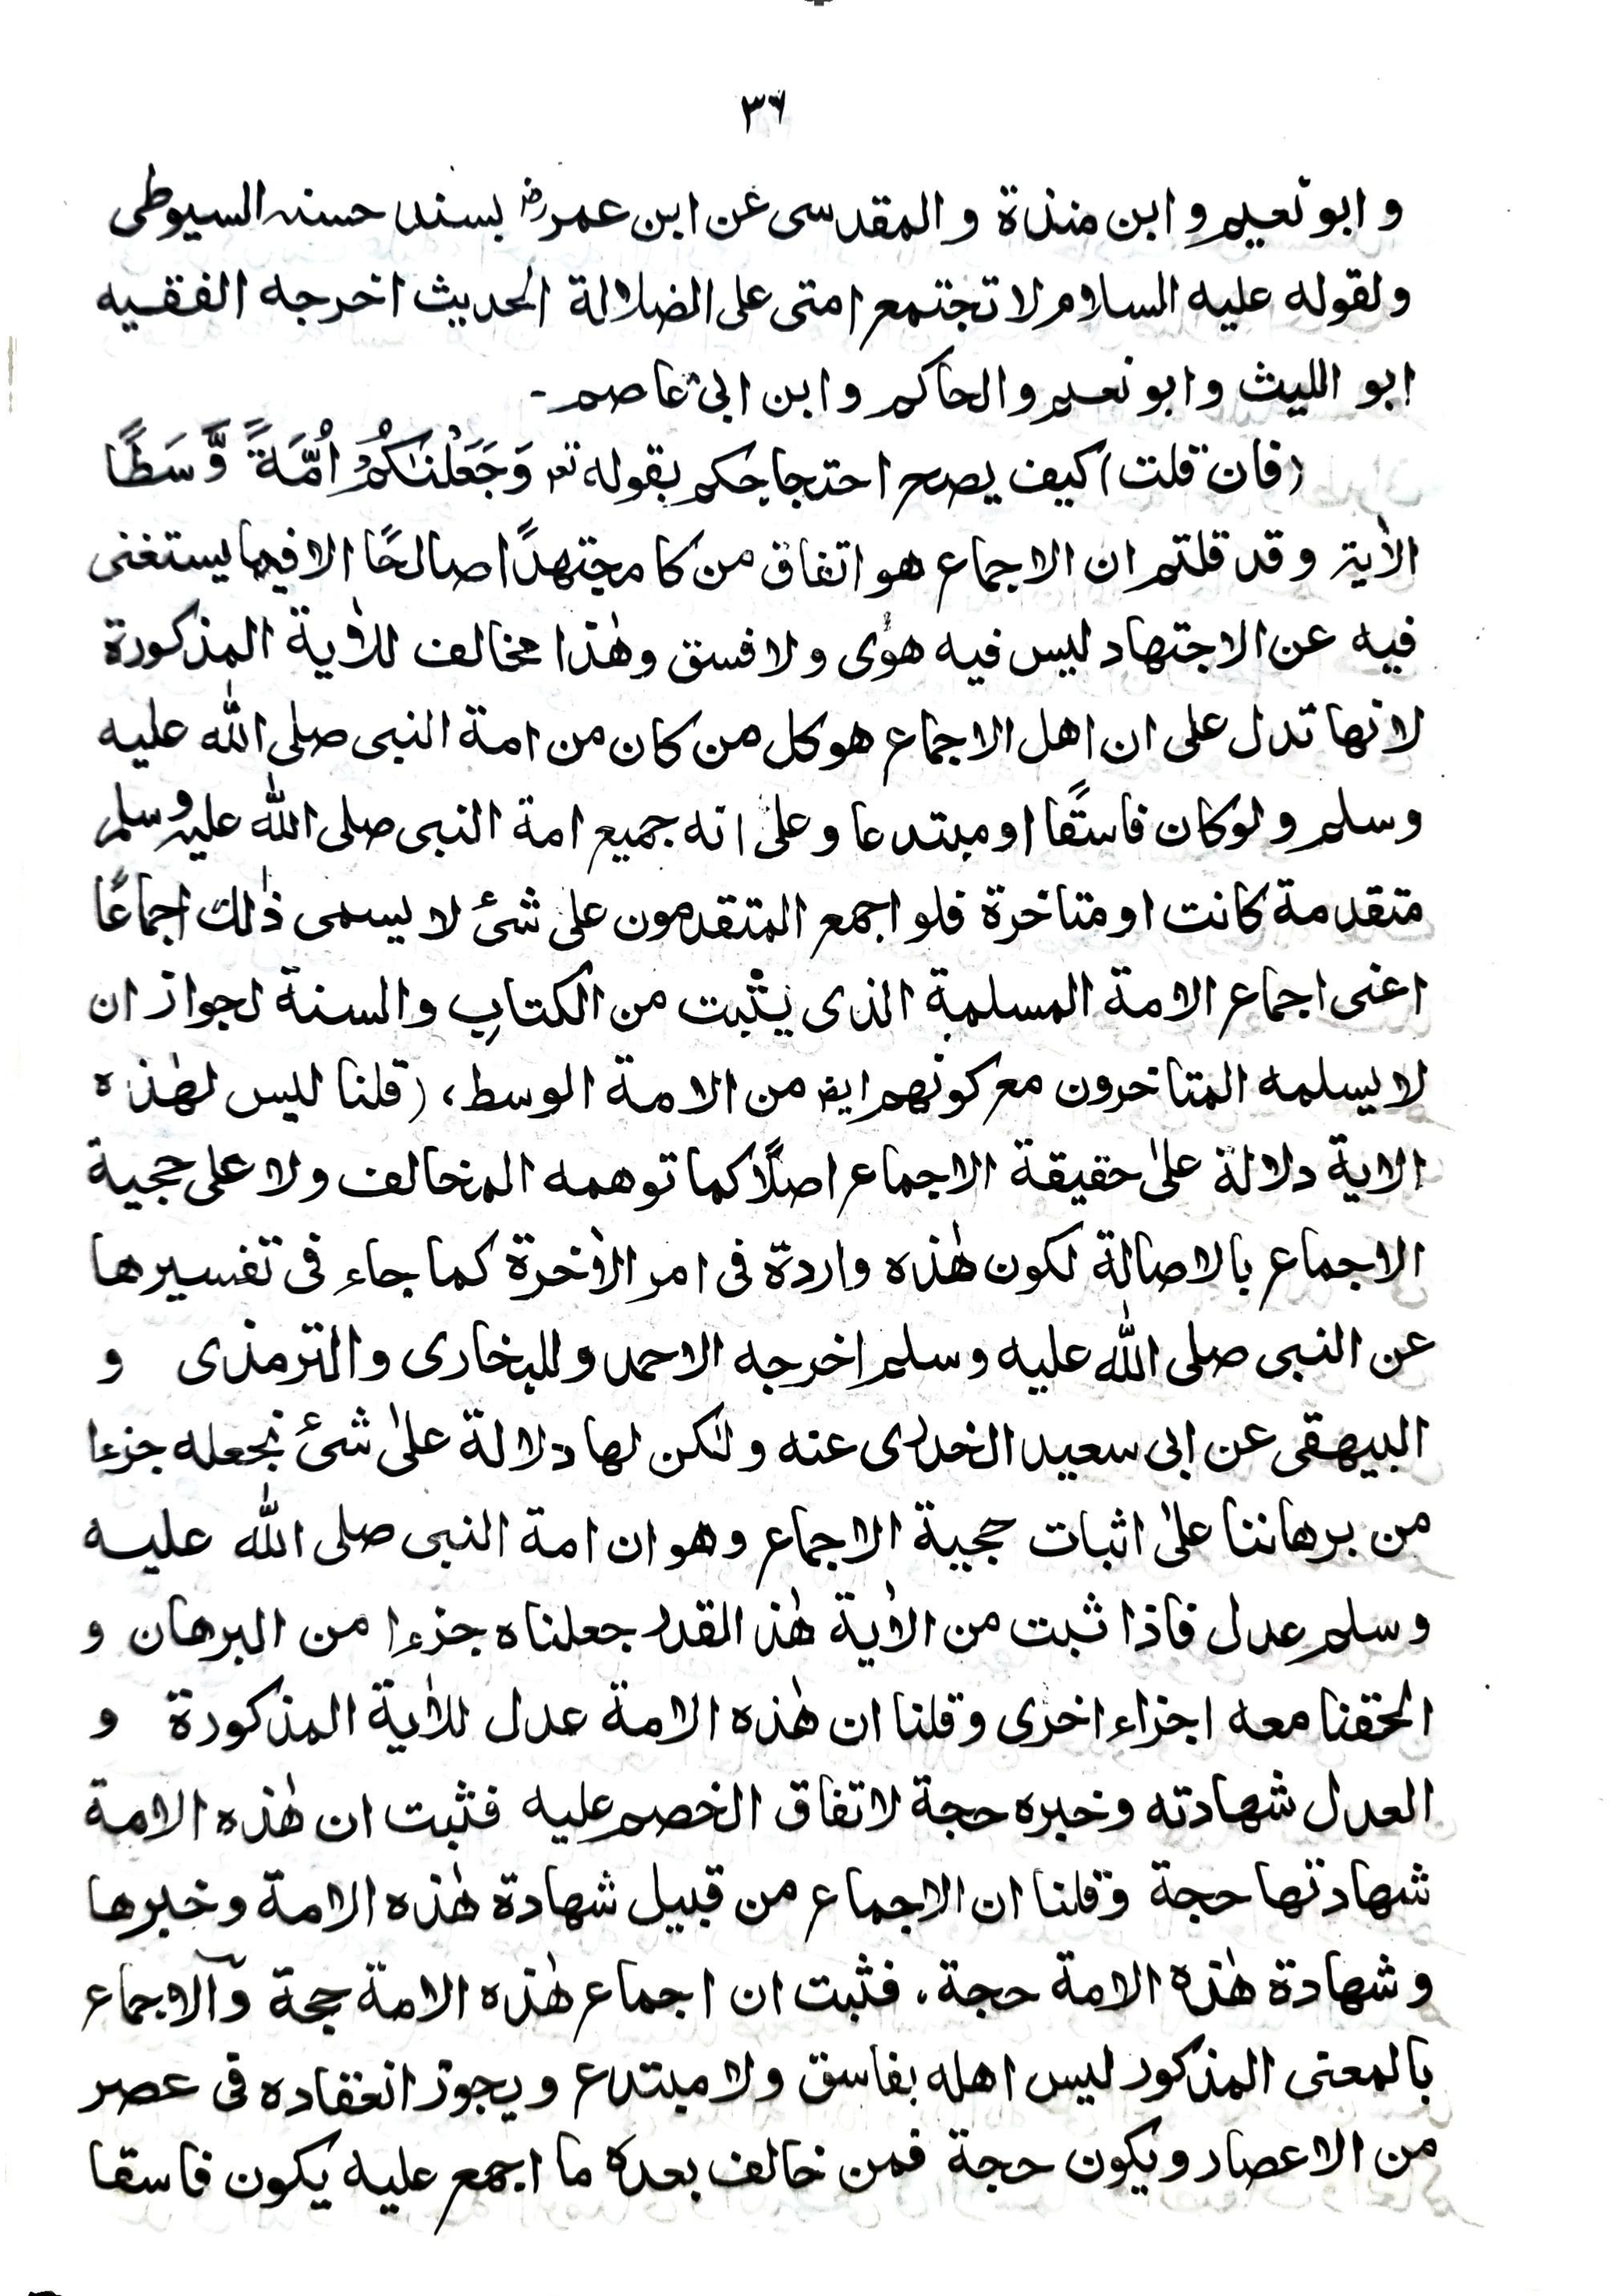 ٣٦
و ابو نعيم و ابن منذة و المقدسى عن ابن عمرؓ بسند حسنہ السيوطى
ولقوله عليه السلام لا تجتمع امتى على الضلالة الحديث اخرجه الفقيه
ابو الليث و ابو نعيم و الحاكم و ابن ابى عاصم۔
(فان قلت) كيف يصح احتجاجكم بقوله تعہ وَجَعَلْنٰكُمْ اُمَّةً وَّسَطًا
الاٰية و قد قلتم ان الاجماع هو اتفاق من كا مجتهدًا صالحًا الا فيما يستغنى
فيه عن الاجتهاد ليس فيه هوٰى و لا فسق و هٰذا مخالف للاٰية المذكورة
لانها تدل على ان اهل الاجماع هو كل من كان من امة النبى صلى الله عليه
وسلم و لو كان فاسقًا او مبتدعا و على انه جميع امة النبى صلى الله عليہ وسلم
متقدمة كانت او متاخرة فلو اجمع المتقدمون على شئ لا يسمى ذٰلك اجماعًا
اعنى اجماع الامة المسلمة الذى يثبت من الكتاب و السنة لجواز ان
لا يسلمه المتاخرون مع كونهم ايضہ من الامة الوسط، (قلنا ليس لهٰذه
الاية دلالة علىٰ حقيقة الاجماع اصلًا كما توهمه المخالف و لا على حجية
الاجماع بالاصالة لكون هٰذه واردة فى امر الاٰخرة كما جاء فى تفسيرها
عن النبى صلى الله عليه وسلم اخرجه الاحمد و للبخارى و الترمذى و
البيهقى عن ابى سعيد الخدرى عنه و لٰكن لها دلالة علىٰ شئ نجعله جزءا
من برهاننا علىٰ اثبات حجية الاجماع و هو ان امة النبى صلى الله عليه
وسلم عدل فاذا ثبت من الاٰية هٰذ القدر جعلناه جزءا من البرهان و
الحقنا معه اجزاء اخرى و قلنا ان هٰذه الامة عدل للاٰية المذكورة و
العدل شهادته و خبره حجة لاتفاق الخصم عليه فثبت ان هٰذه الامة
شهادتها حجة و قلنا ان الاجماع من قبيل شهادة هٰذه الامة و خبرها
و شهادة هٰذه الامة حجة. فثبت ان اجماع هٰذه الامة حجة و الاجماع
بالمعنى المذكور ليس اهله بفاسق و لا مبتدع و يجوز انعقاده فى عصر
من الاعصار و يكون حجة فمن خالف بعده ما اجمع عليه يكون فاسقا